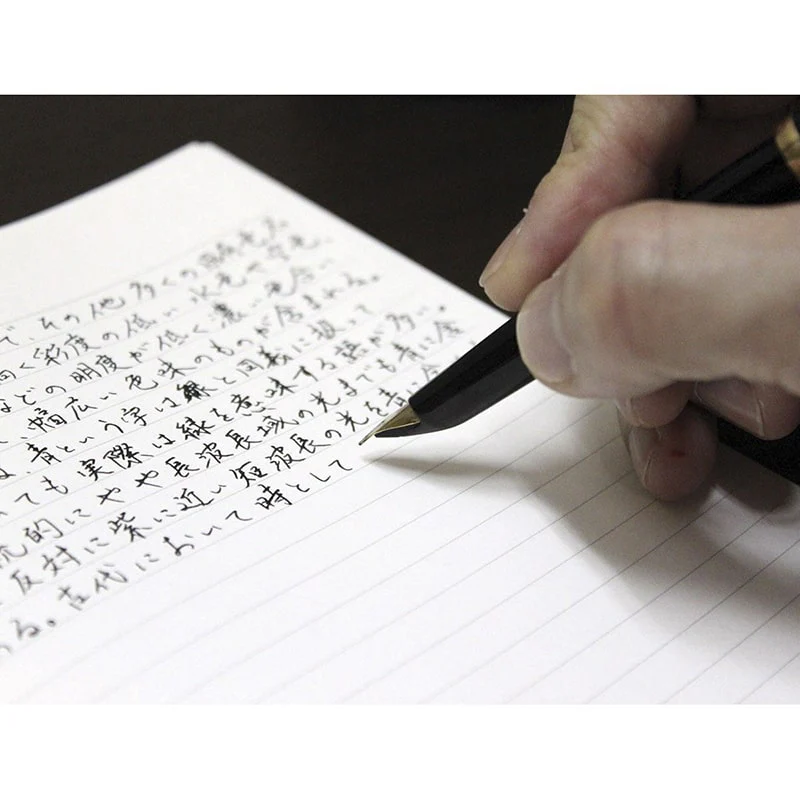 で その他多くの
く彩度の低い水色や空色、
などの明度が低く濃い色合い
、幅広い色味のものが含まれる。
、青という字は緑と同義に扱って
いても実際は緑を意味する語が多い。
統的にやや長波長域の光までも青に含
反対に紫に近い短波長の光を青に含
る。古代において時として